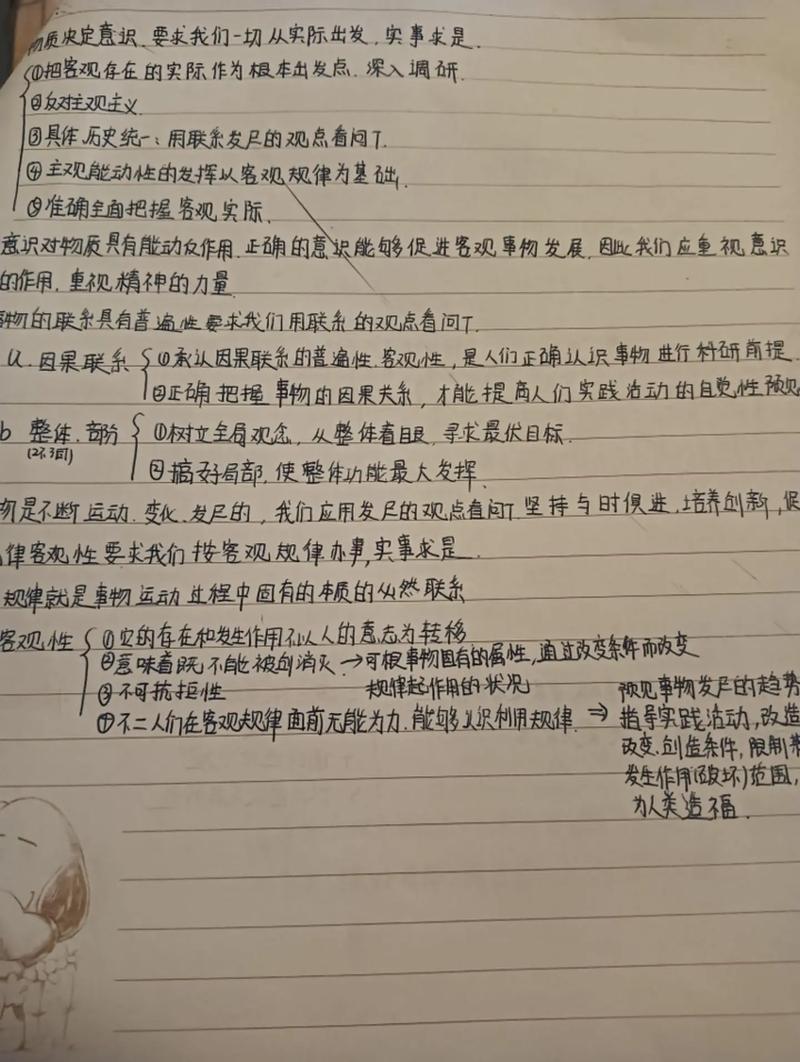 物质决定意识.要求我们一切从实际出发.实事求是.
①把客观存在的实际作为根本出发点.深入调研.
②反对主观主义.
③具体.历史统一：用联系发尸的观点看问丁.
④主观能动性的发挥以客观规律为基础.
⑤准确全面把握客观实际.
意识对物质具有能动反作用.正确的意识能够促进客观事物发展.因此我们应重视意识
的作用.重视精神的力量.
物的联系具有普遍性要求我们用联系的观点看问丁.
a.因果联系 ①承认因果联系的普遍性.客观性，是人们正确认识事物进行科研前提.
②正确把握事物的因果关系，才能提高人们实践活动的自觉性预见
b 整体.部分 ①树立全局观念，从整体着眼，寻求最优目标.
②搞好局部，使整体功能最大发挥.
物是不断运动.变化.发尸的，我们应用发尸的观点看问丁.坚持与时俱进.培养创新，促
律客观性要求我们按客观规律办事，实事求是.
规律就是事物运动过程中固有的本质的必然联系
客观性 ①它的存在和发生作用不以人的意志为转移
②意味着既不能被创消灭→可根事物固有的属性，通过改变条件而改变
规律起作用的状况
③不可抗拒性
④不二人们在客观规律面前无能为力.能够认识利用规律.⇒
预见事物发尸的趋势
指导实践活动，改造
改变.创造条件，限制
发生作用(破坏)范围，
为人类造福.